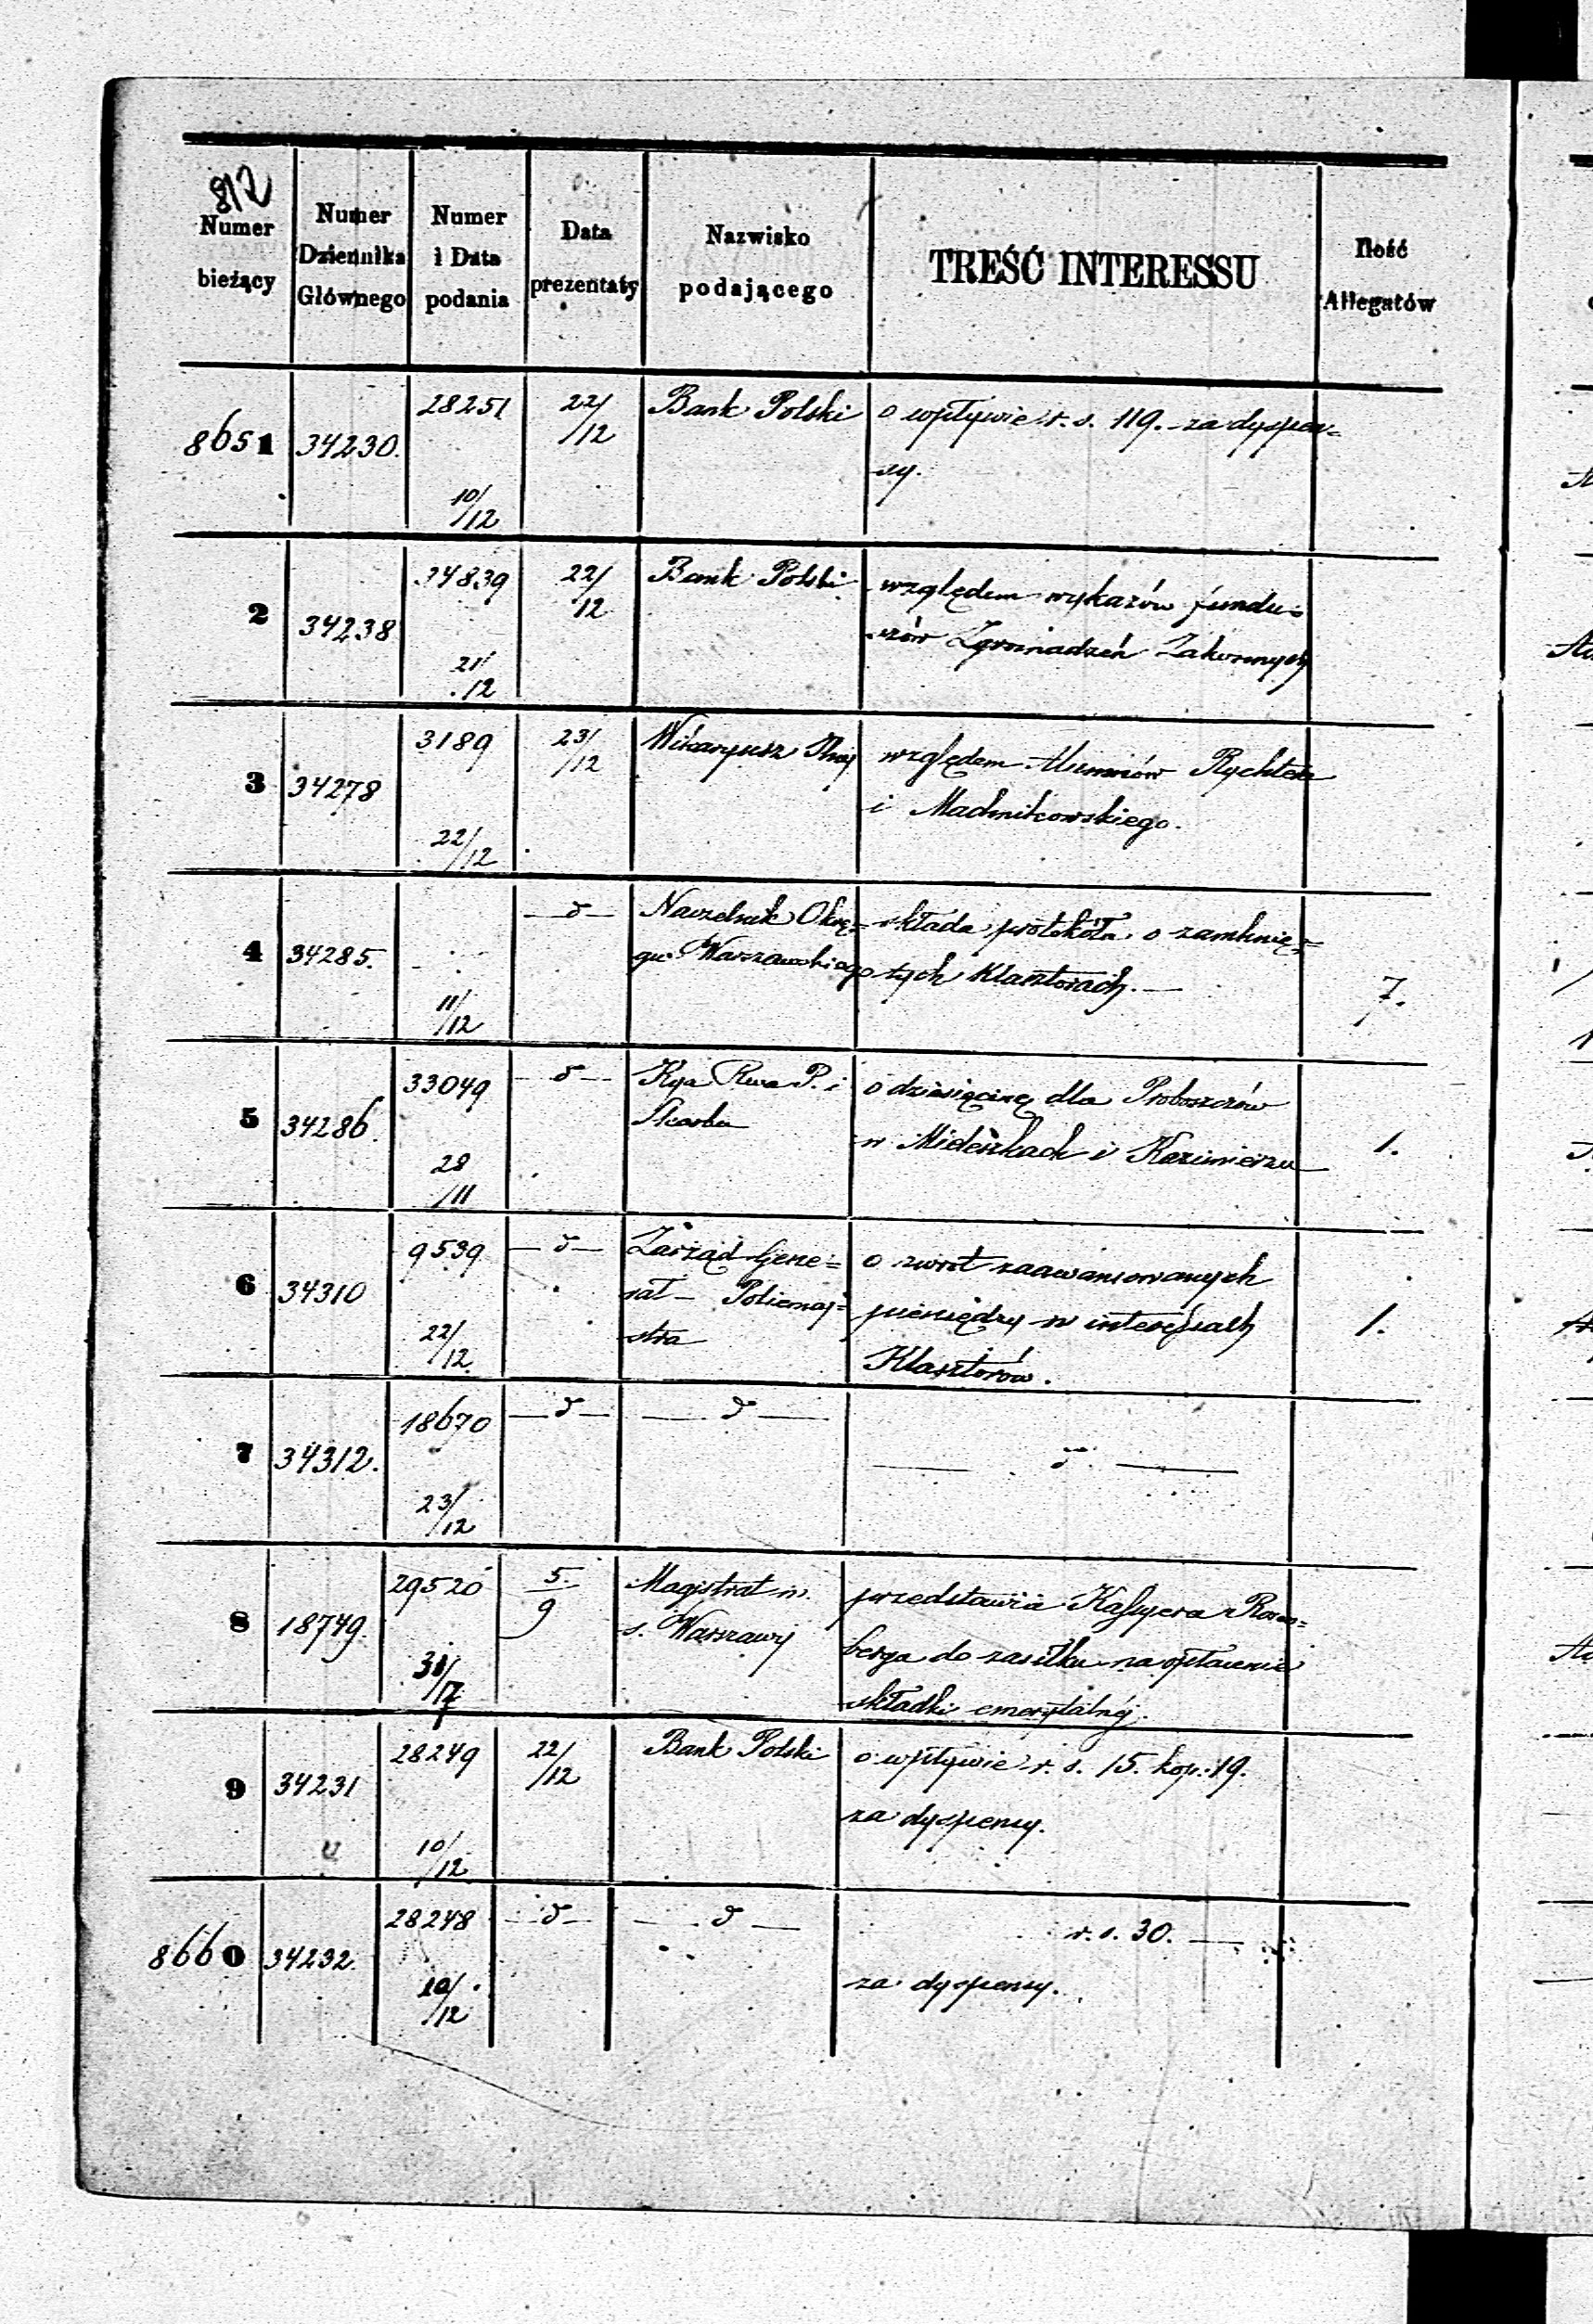 812
Numer bieżący
Numer Dziennika Głównego
Numer i Data podania
Data prezentaty
Nazwisko podającego
TREŚĆ INTERESSU
Ilość Allegatów
8651 34230. 28251 10/12 22/12 Bank Polski o wpływie r. s. 119. za dyspen=
sy.
2 34238 34839 21/12 22/12 Bank Polski względem wykazów fundu=
szów Zgromadzeń Zakonnych
3 34278 3189 22/12 23/12 Wikaryusz względem Alumnów Rychtera
i Machnikowskiego.
4 34285. 11/12 —d— Naczelnik Okrę= składa protokóła o zamknię=
gu Warszawskiego tych Klasztorach. — 7.
5 34286. 33049 28/11 —d— Kya Rwa P. i o dziesięcinę dla Proboszczów
Skarbu w Mieleszkach i Kazimierzu 1.
6 34310 9539 22/12 —d— Zarząd Gene= o zwrot zaawansowanych
rał — Policmaj= pieniędzy w interessach 1.
stra Klasztorów.
7 34312. 18670 23/12 —d— —d— —d—
8 18749. 29520 31/7 5/9 Magistrat m. przedstawia Kassyera Rosen=
s. Warszawy berga do zasiłku na opłacenie
składki emerytalnéj.
9 34231 28249 10/12 22/12 Bank Polski o wpływie r. s. 15. kop. 19.
za dyspensy.
8660 34232. 28248 10/12 —d— —d— r. s. 30. —
za dyspensy.